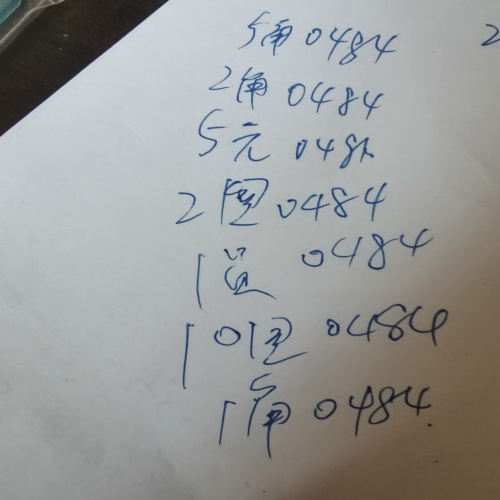 5角 0484 2
2角 0484
5元 0484
2圆 0484
1圆 0484
10圆 0484
1角 0484